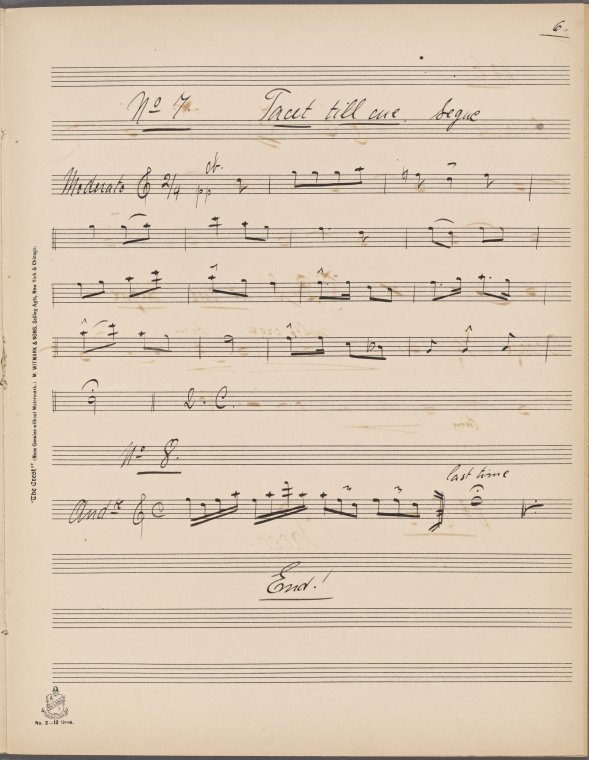 6.
No 7. Tacet till cue. Segue
Moderato 2/4 pp
D. C.
No 8.
last time
Andte C
End!
"The Crest" (None Genuine without Watermark.) M. WITMARK & SONS. Selling Agts, New York & Chicago.
No. 2–12 lines.